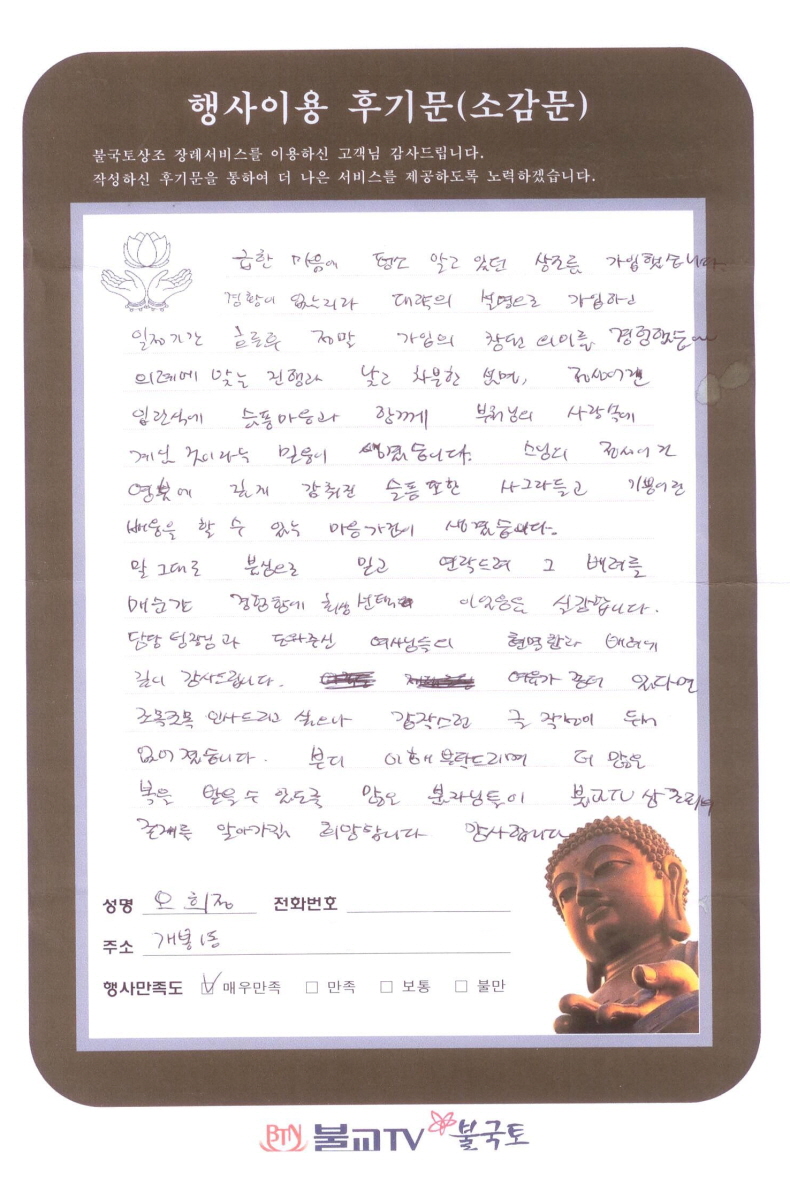 행사이용 후기문(소감문)
불국토상조 장례서비스를 이용하신 고객님 감사드립니다.
작성하신 후기문을 통하여 더 나은 서비스를 제공하도록 노력하겠습니다.
급한 마음에 평소 알고 있던 상조를 가입했습니다.
경황이 없느리라 대략의 설명으로 가입하고
일정기간 흐른후 정말 가입의 참된 의미를 경험했는데
의례에 맞는 진행과 낮고 차분한 정성어린
입관식에 슬픔마음과 함께 부처님의 사랑속에
계신 것이라는 믿음이 생겼습니다. 스님의 정성어린
영불에 깊게 감취진 슬픔 또한 사그라들고 기쁨어린
배웅을 할 수 있는 마음가짐이 생겼습니다.
말 그대로 본심으로 믿고 연락드려 그 배려를
매순간 경황함에 최상 선택 이었음을 실감합니다.
담당 팀장님과 도와주신 여사님들의 현명함과 배려에
깊이 감사드립니다. 여유가 좀더 있다면
조목조목 인사드리고 싶으나 갑작스런 글 작성이 두서
없어졌습니다. 부디 이해 부탁드리며 더 많은
복을 받을 수 있도록 많은 불자님들이 불교TV 상조의
존재를 알아가길 희망합니다 감사합니다
성명 오희정 전화번호
주소 개봉1동
행사만족도 ☑ 매우만족 □ 만족 □ 보통 □ 불만
BTN 불교TV 불국토